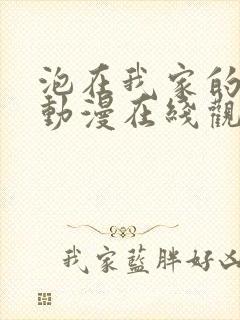 泡在我家的
動漫在綫觀
我家藍胖好凶